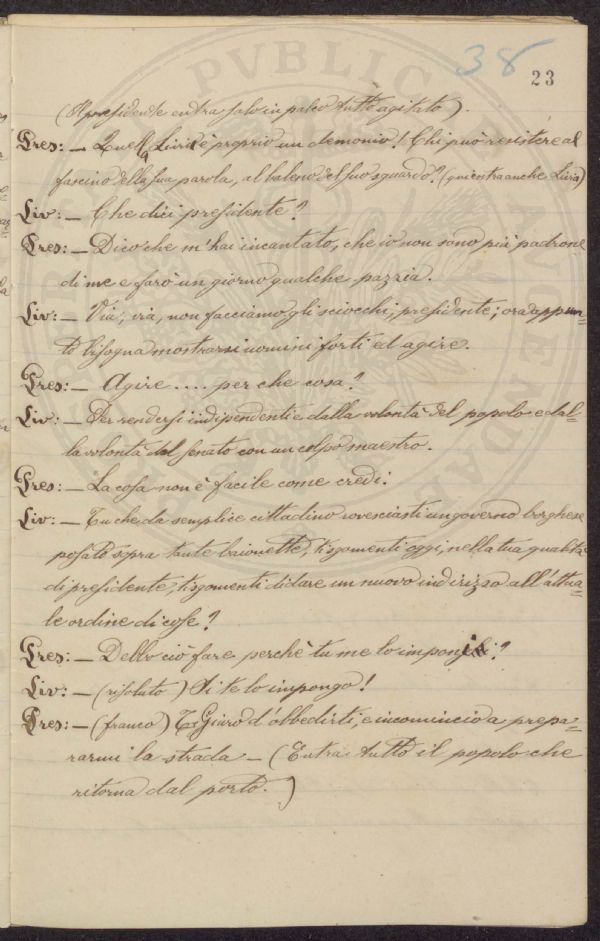 38
23
(Il presidente entra solo in palco tutt'agitato).
Pres: — Quella Livia è proprio un demonio! Chi può resistere al
fascino della sua parola, al baleno del suo sguardo? (qui entra anche Livia)
Liv: — Che dici presidente?
Pres: — Dico che m'hai incantato, che io non sono più padrone
di me e farò un giorno qualche pazzia.
Liv: — Via, via, non facciamo gli sciocchi, presidente; ora appun=
to bisogna mostrarsi uomini forti ed agire.
Pres: — Agire .... per che cosa?
Liv: — Per rendersi indipendenti e dalla volontà del popolo e dal=
la volontà del senato con un colpo maestro.
Pres: — La cosa non è facile come credi.
Liv: — Tu che da semplice cittadino rovesciasti un governo borghese
posato sopra tante baionette, ti sgomenti oggi, nella tua qualità
di presidente, ti sgomenti di dare un nuovo indirizzo all'attua=
le ordine di cose?
Pres: — Debbo ciò fare perchè tu me lo imponi?
Liv: — (risoluto) Sì te lo impongo!
Pres: — (franco) Giuro d'obbedirti, e incomincio a prepa=
rarmi la strada — (Entra tutto il popolo che
ritorna dal porto.)
PVBLIC